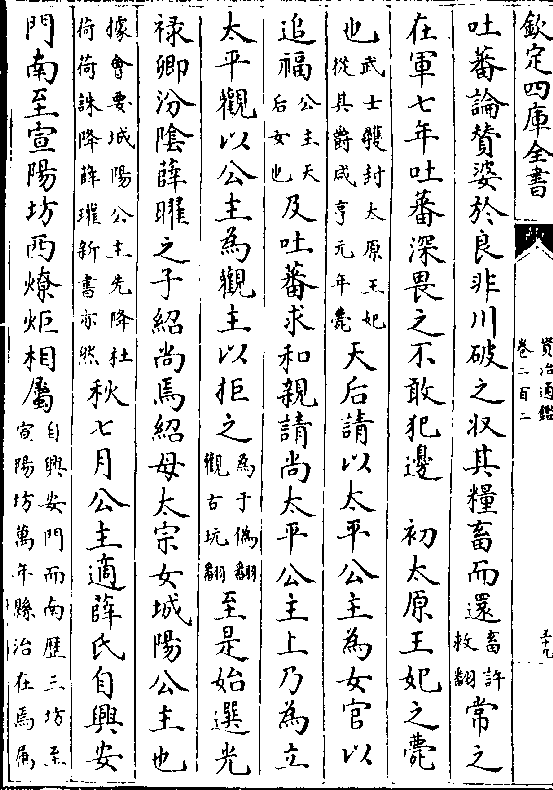 欽定四庫全書
資治通鑑
卷二百二
三十九
吐蕃論贊婆於良非川破之収其糧畜而還畜許救翻常之
在軍七年吐蕃深畏之不敢犯邊　初太原王妃之薨
也武士彠封太原王妃從其爵咸亨元年薨天后請以太平公主為女官以
追福公主天后女也及吐蕃求和親請尚太平公主上乃為立
太平觀以公主為觀主以拒之為于偽翻觀古玩翻至是始選光
禄卿汾陰薛曜之子紹尚焉紹母太宗女城陽公主也
據會要城陽公主先降杜荷荷誅降薛瓘新書亦然秋七月公主適薛氏自興安
門南至宣陽坊西燎炬相屬自興安門而南歷三坊至宣陽坊萬年縣治在焉屬